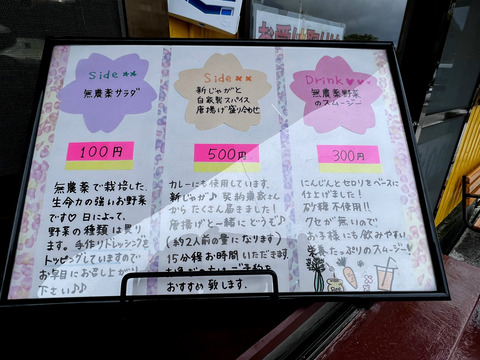 お受け取り
Side
無農薬サラダ
100円
無農薬で栽培した、
生命力の強いお野菜
です♡ 日によって、
野菜の種類は異り
ます。手作りドレッシングを
トッピングしていますので
お早目にお召し上がり
下さい♪♪
Side
新じゃがと
自家製スパイス
唐揚げ盛り合わせ
500円
カレーにも使用しています。
新じゃが♪ 契約農家さん
からたくさん届きました!
唐揚げと一緒にどうぞ♪
(約2人前の量になります)
15分程お時間いただきます。
おすすめ致します。
Drink
無農薬野菜
のスムージー
300円
にんじんとセロリをベースに
仕上げました!
砂糖不使用!!
クセが無いので
お子様にも飲みやすい
栄養たっぷりのスムージー!